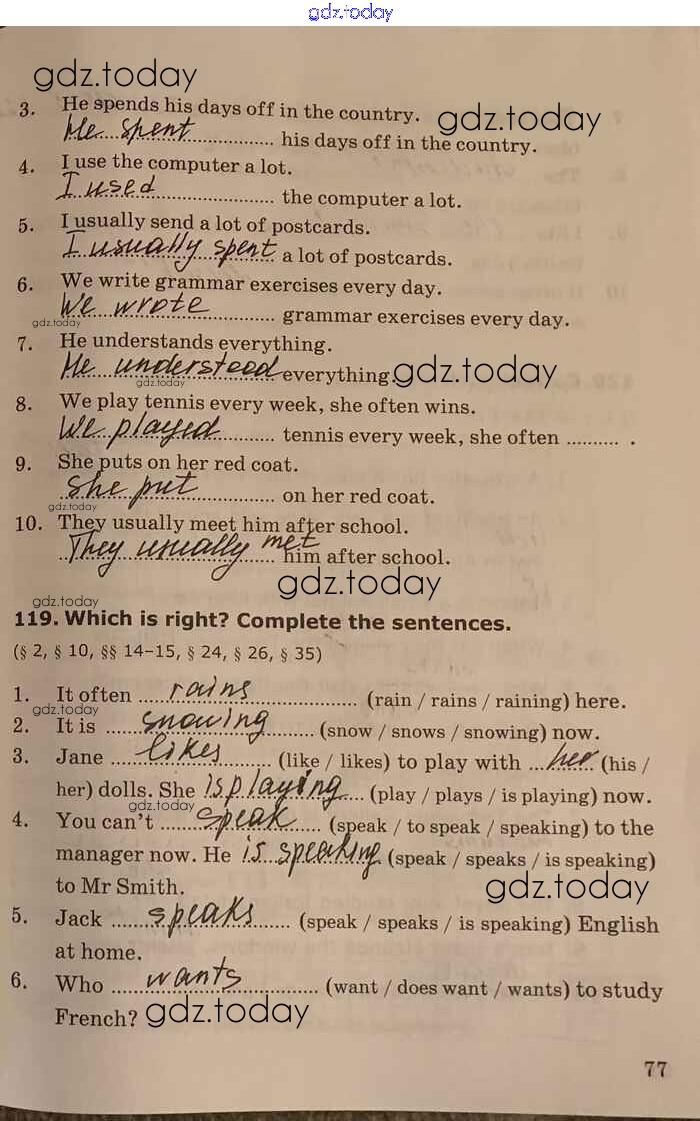 gdz.today
gdz.today
3. He spends his days off in the country.
gdz.today
He spent his days off in the country.
4. I use the computer a lot.
I used the computer a lot.
5. I usually send a lot of postcards.
I usually spent a lot of postcards.
6. We write grammar exercises every day.
We wrote grammar exercises every day.
gdz.today
7. He understands everything.
He understood everything.
gdz.today
gdz.today
8. We play tennis every week, she often wins.
We played tennis every week, she often .......... .
9. She puts on her red coat.
She put on her red coat.
gdz.today
10. They usually meet him after school.
They usually met him after school.
gdz.today
gdz.today
119. Which is right? Complete the sentences.
(§ 2, § 10, §§ 14–15, § 24, § 26, § 35)
1. It often rains (rain / rains / raining) here.
gdz.today
2. It is snowing (snow / snows / snowing) now.
3. Jane likes (like / likes) to play with her (his /
her) dolls. She is playing (play / plays / is playing) now.
gdz.today
4. You can't speak (speak / to speak / speaking) to the
manager now. He is speaking (speak / speaks / is speaking)
to Mr Smith.
gdz.today
5. Jack speaks (speak / speaks / is speaking) English
at home.
6. Who wants (want / does want / wants) to study
French?
gdz.today
77